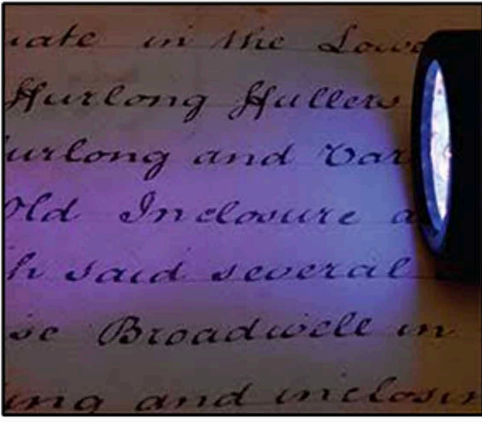 uate in the Lowe
ffurlong ffullers
urlong and Var
Old Inclosure a
h said several
se Broadwell in
ing and inclosin